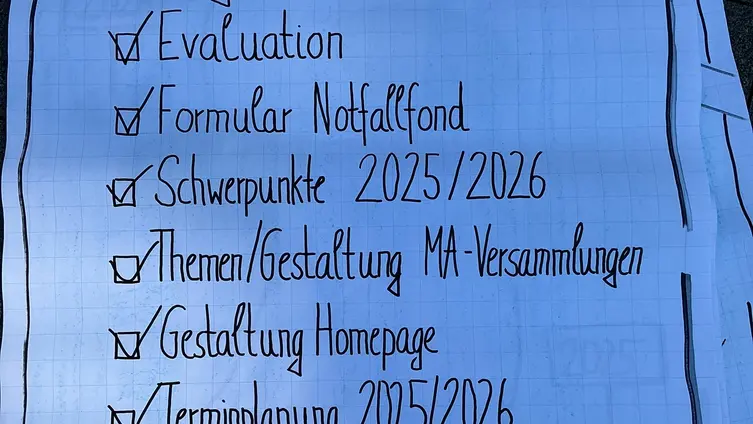 Evaluation
Formular Notfallfond
Schwerpunkte 2025/2026
Themen/Gestaltung MA-Versammlungen
Gestaltung Homepage
Terminplanung 2025/2026